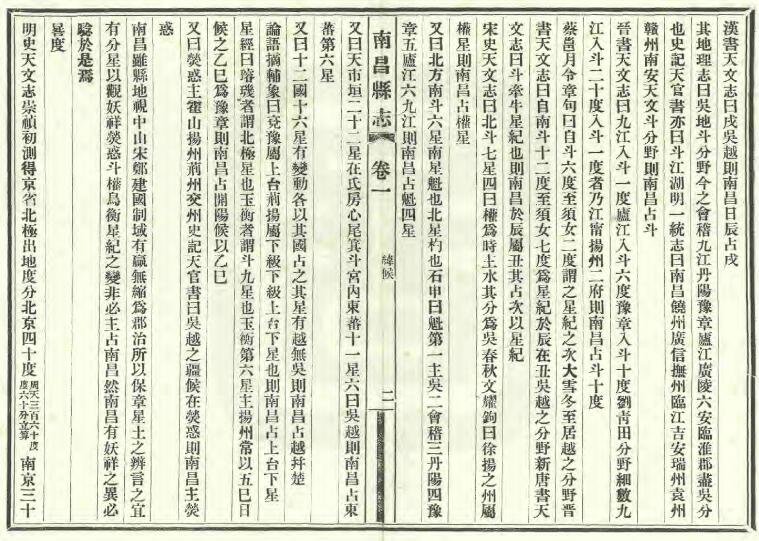 漢書天文志曰戌吳越則南昌日辰占戌
其地理志曰吳地斗分野今之會稽九江丹陽豫章廬江廣陵六安臨淮郡盡吳分
也史記天官書亦曰斗江湖明一統志曰南昌饒州廣信撫州臨江吉安瑞州袁州
贛州南安天文斗分野則南昌占斗
晉書天文志曰九江入斗一度廬江入斗六度豫章入斗十度劉青田分野細數九
江入斗二十度入斗一度者乃江甯揚州二府則南昌占斗十度
蔡邕月令章句曰自斗六度至須女二度謂之星紀之次大雪冬至居越之分野晉
書天文志曰自南斗十二度至須女七度爲星紀於辰在丑吳越之分野新唐書天
文志曰斗牽牛星紀也則南昌於辰屬丑其占次以星紀
宋史天文志曰北斗七星四曰權爲時主水其分爲吳春秋文耀鉤曰徐揚之州屬
權星則南昌占權星
又曰北方南斗六星南星魁也北星杓也石申曰魁第一主吳二會稽三丹陽四豫
章五廬江六九江則南昌占魁四星
南昌縣志
卷一
緯候
二
又曰天市垣二十二星在氐房心尾箕斗宮內東蕃十一星六曰吳越則南昌占東
蕃第六星
又曰十二國十六星有變動各以其國占之其星有越無吳則南昌占越幷楚
論語摘輔象曰兗豫屬上台荊揚屬下級下級上台下星也則南昌占上台下星
星經曰璿璣者謂北極星也玉衡者謂斗九星也玉衡第六星主揚州常以五巳日
候之乙巳爲豫章則南昌占開陽候以乙巳
又曰熒惑主霍山揚州荊州交州史記天官書曰吳越之疆候在熒惑則南昌主熒
惑
南昌雖縣地視中山宋鄭建國制域有贏無縮爲郡治所以保章星土之辨言之宜
有分星以觀妖祥熒惑斗權鳥衡星紀之變非必主占南昌然南昌有妖祥之異必
驗於是焉
晷度
明史天文志崇禎初測得京省北極出地度分北京四十度周天三百六十度度六十分立算南京三十